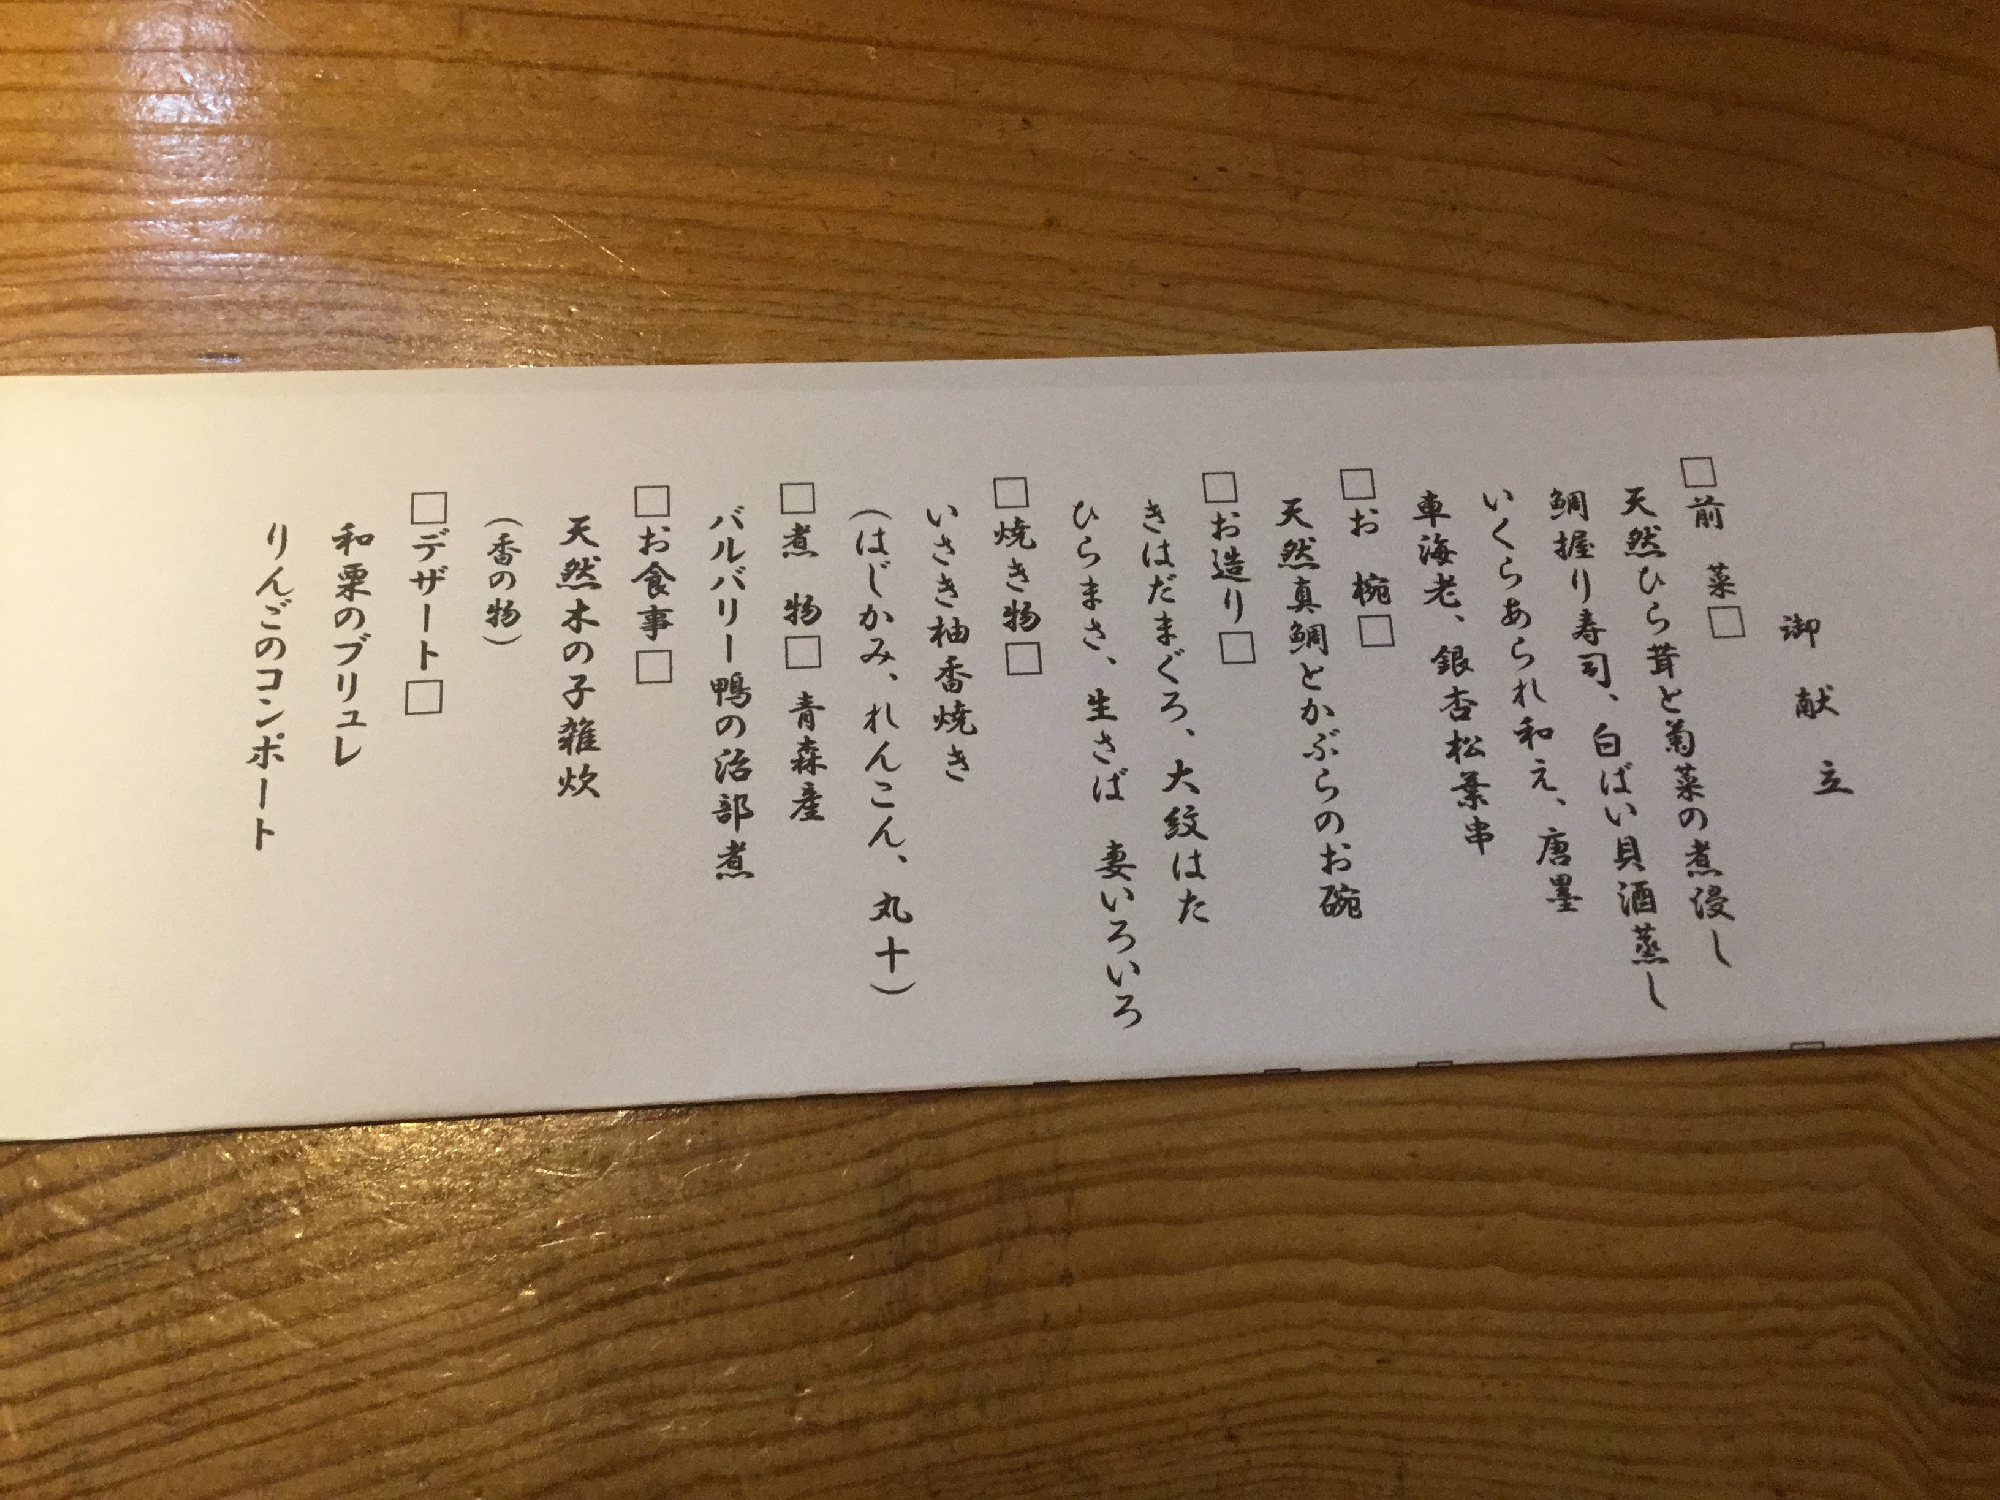 御献立
□前 菜□
天然ひら茸と菊菜の煮浸し
鯛握り寿司、白ばい貝酒蒸し
いくらあられ和え、唐墨
車海老、銀杏松葉串
□お 椀□
天然真鯛とかぶらのお碗
□お造り□
きはだまぐろ、大紋はた
ひらまさ、生さば 妻いろいろ
□焼き物□
いさき柚香焼き
(はじかみ、れんこん、丸十)
□煮 物□ 青森産
バルバリー鴨の治部煮
□お食事□
天然木の子雑炊
(香の物)
□デザート□
和栗のブリュレ
りんごのコンポート